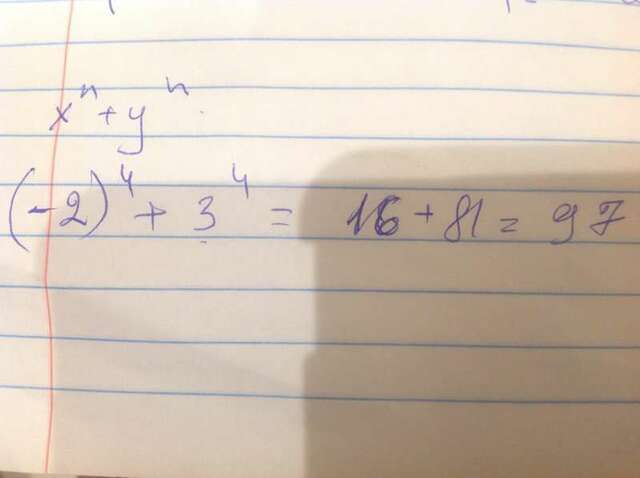 xⁿ + yⁿ
(-2)⁴ + 3⁴ = 16 + 81 = 97